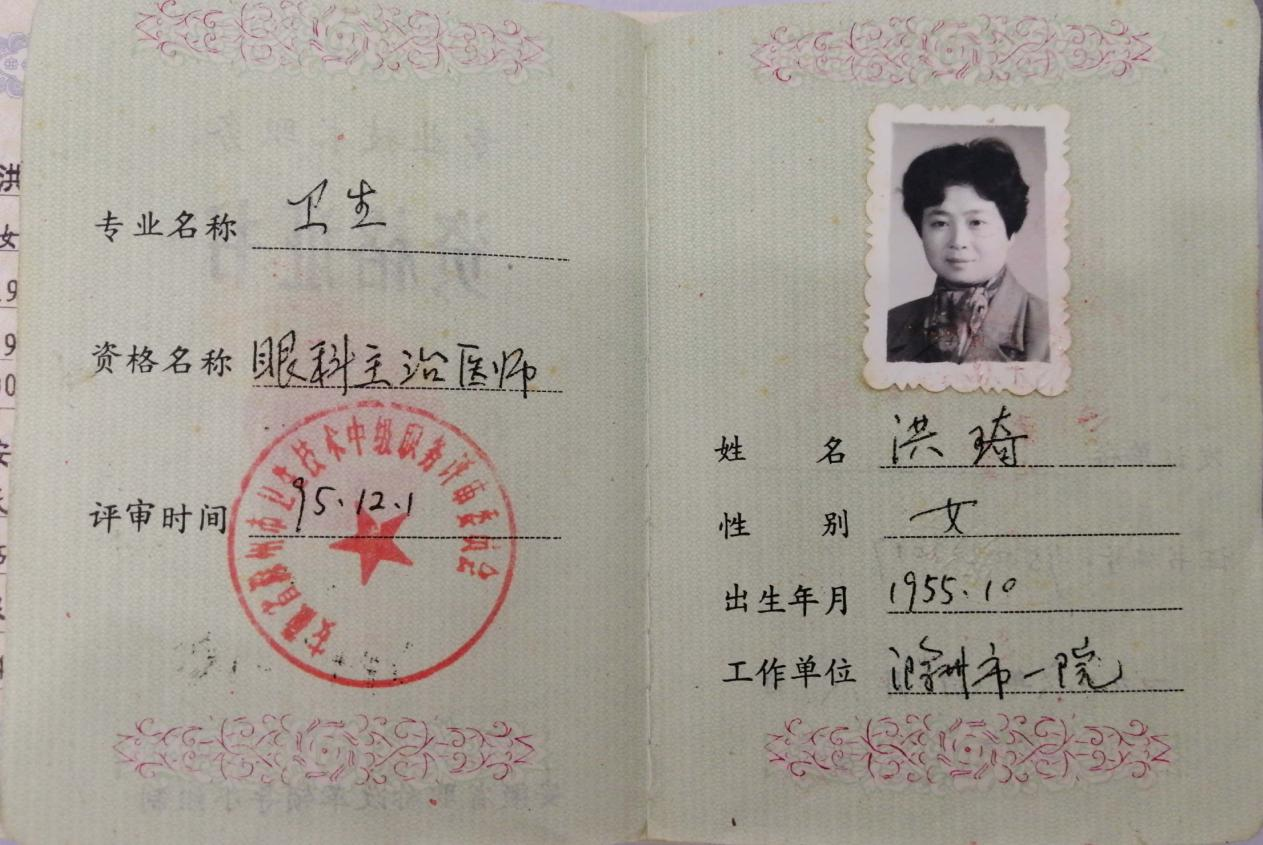 专业名称 卫生
资格名称 眼科主治医师
评审时间 95.12.1
安徽省滁州市卫生技术中级职务评审委员会
姓名 洪琦
性别 女
出生年月 1955.10
工作单位 滁州市一院
洪
女